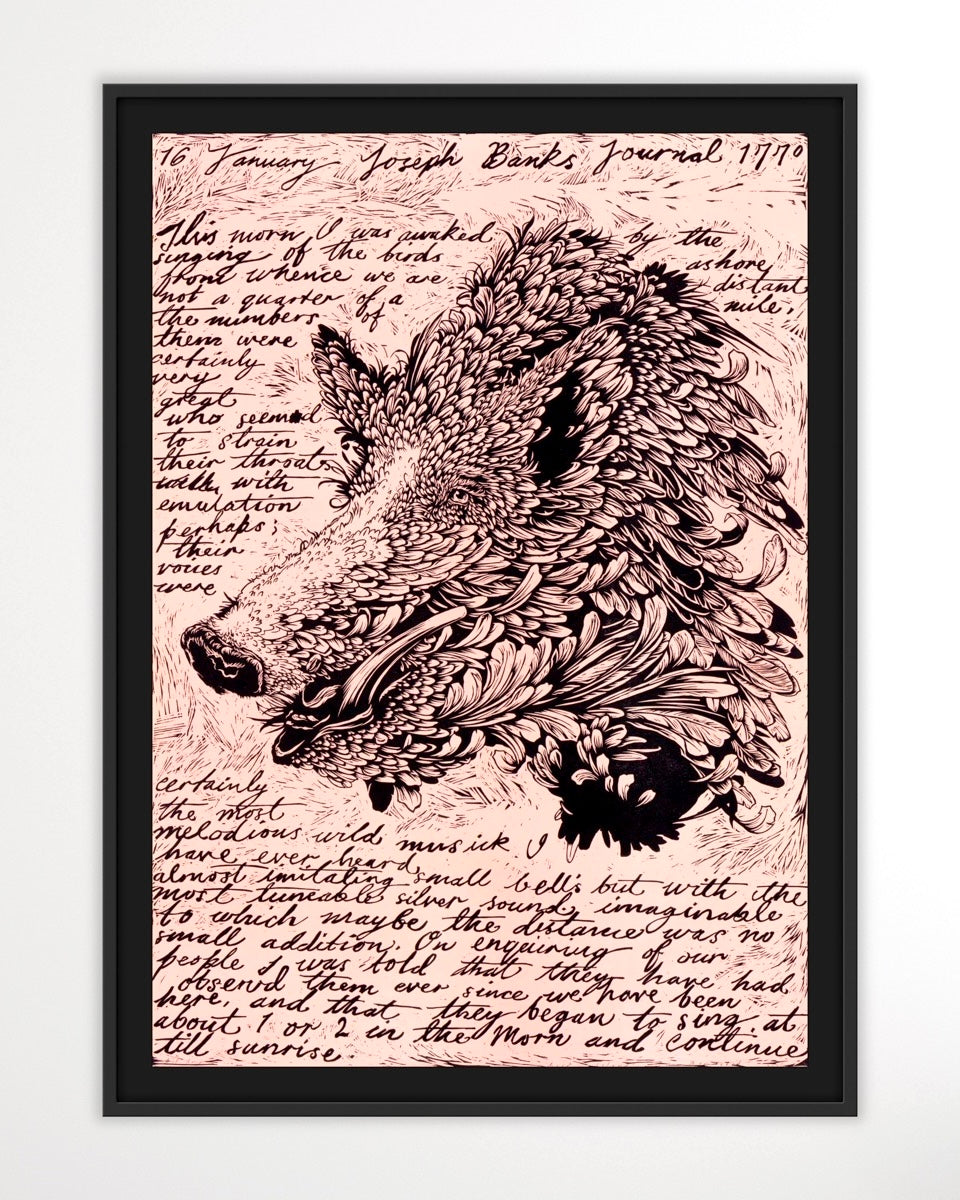 16 January Joseph Banks Journal 1770
This morn I was awaked by the
singing of the birds ashore
from whence we are distant
not a quarter of a mile,
the numbers of
them were
certainly
very
great
who seemed
to strain
their throats
with
emulation
perhaps;
their
voices
were
certainly
the most
melodious wild musick I
have ever heard,
almost imitating small bells but with the
most tuneable silver sound imaginable
to which maybe the distance was no
small addition. On enquiring of our
people I was told that they have had
observd them ever since we have been
here, and that they began to sing at
about 1 or 2 in the Morn and continue
till sunrise.